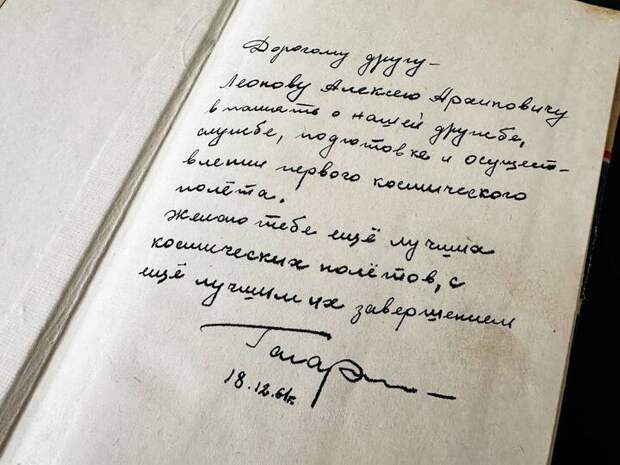 Дорогому другу –
Леонову Алексею Архиповичу
в память о нашей дружбе,
службе, подготовке и осущест-
влении первого космического
полёта.
Желаю тебе ещё лучших
космических полётов, с
ещё лучшим их завершением
Гагарин
18.12.61г.